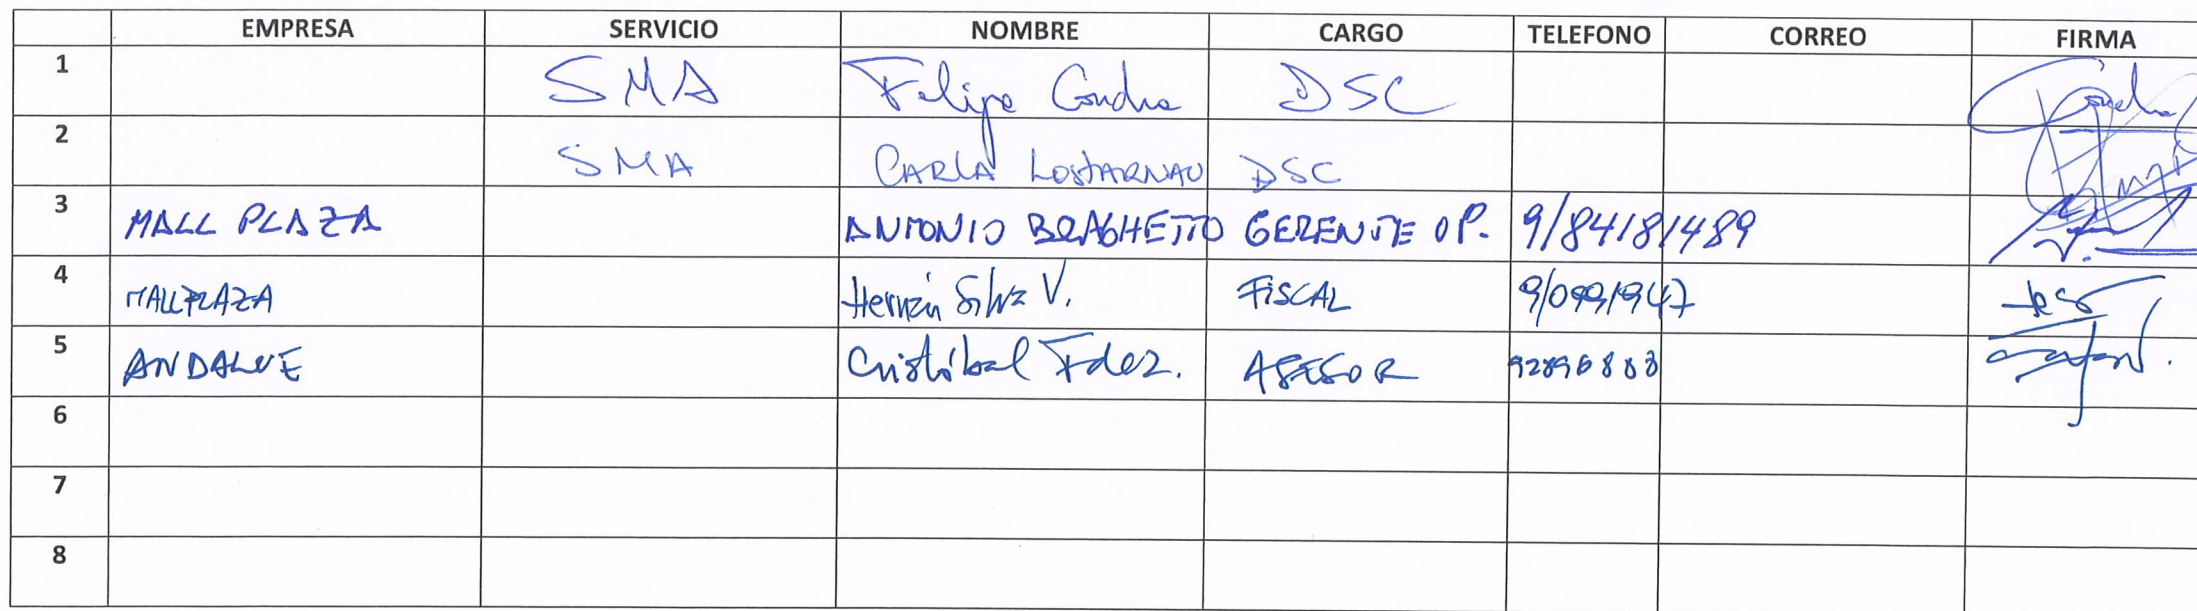 EMPRESA SERVICIO NOMBRE CARGO TELEFONO CORREO FIRMA
1 SMA Felipe Concha DSC
2 SMA CARLA LOSTARNAU DSC
3 MALL PLAZA ANTONIO BRAGHETTO GERENTE OP. 9/84181489
4 MALLPLAZA Hernán Silva V. FISCAL
5 ANDALUE Cristóbal Fdez. ASESOR
6
7
8